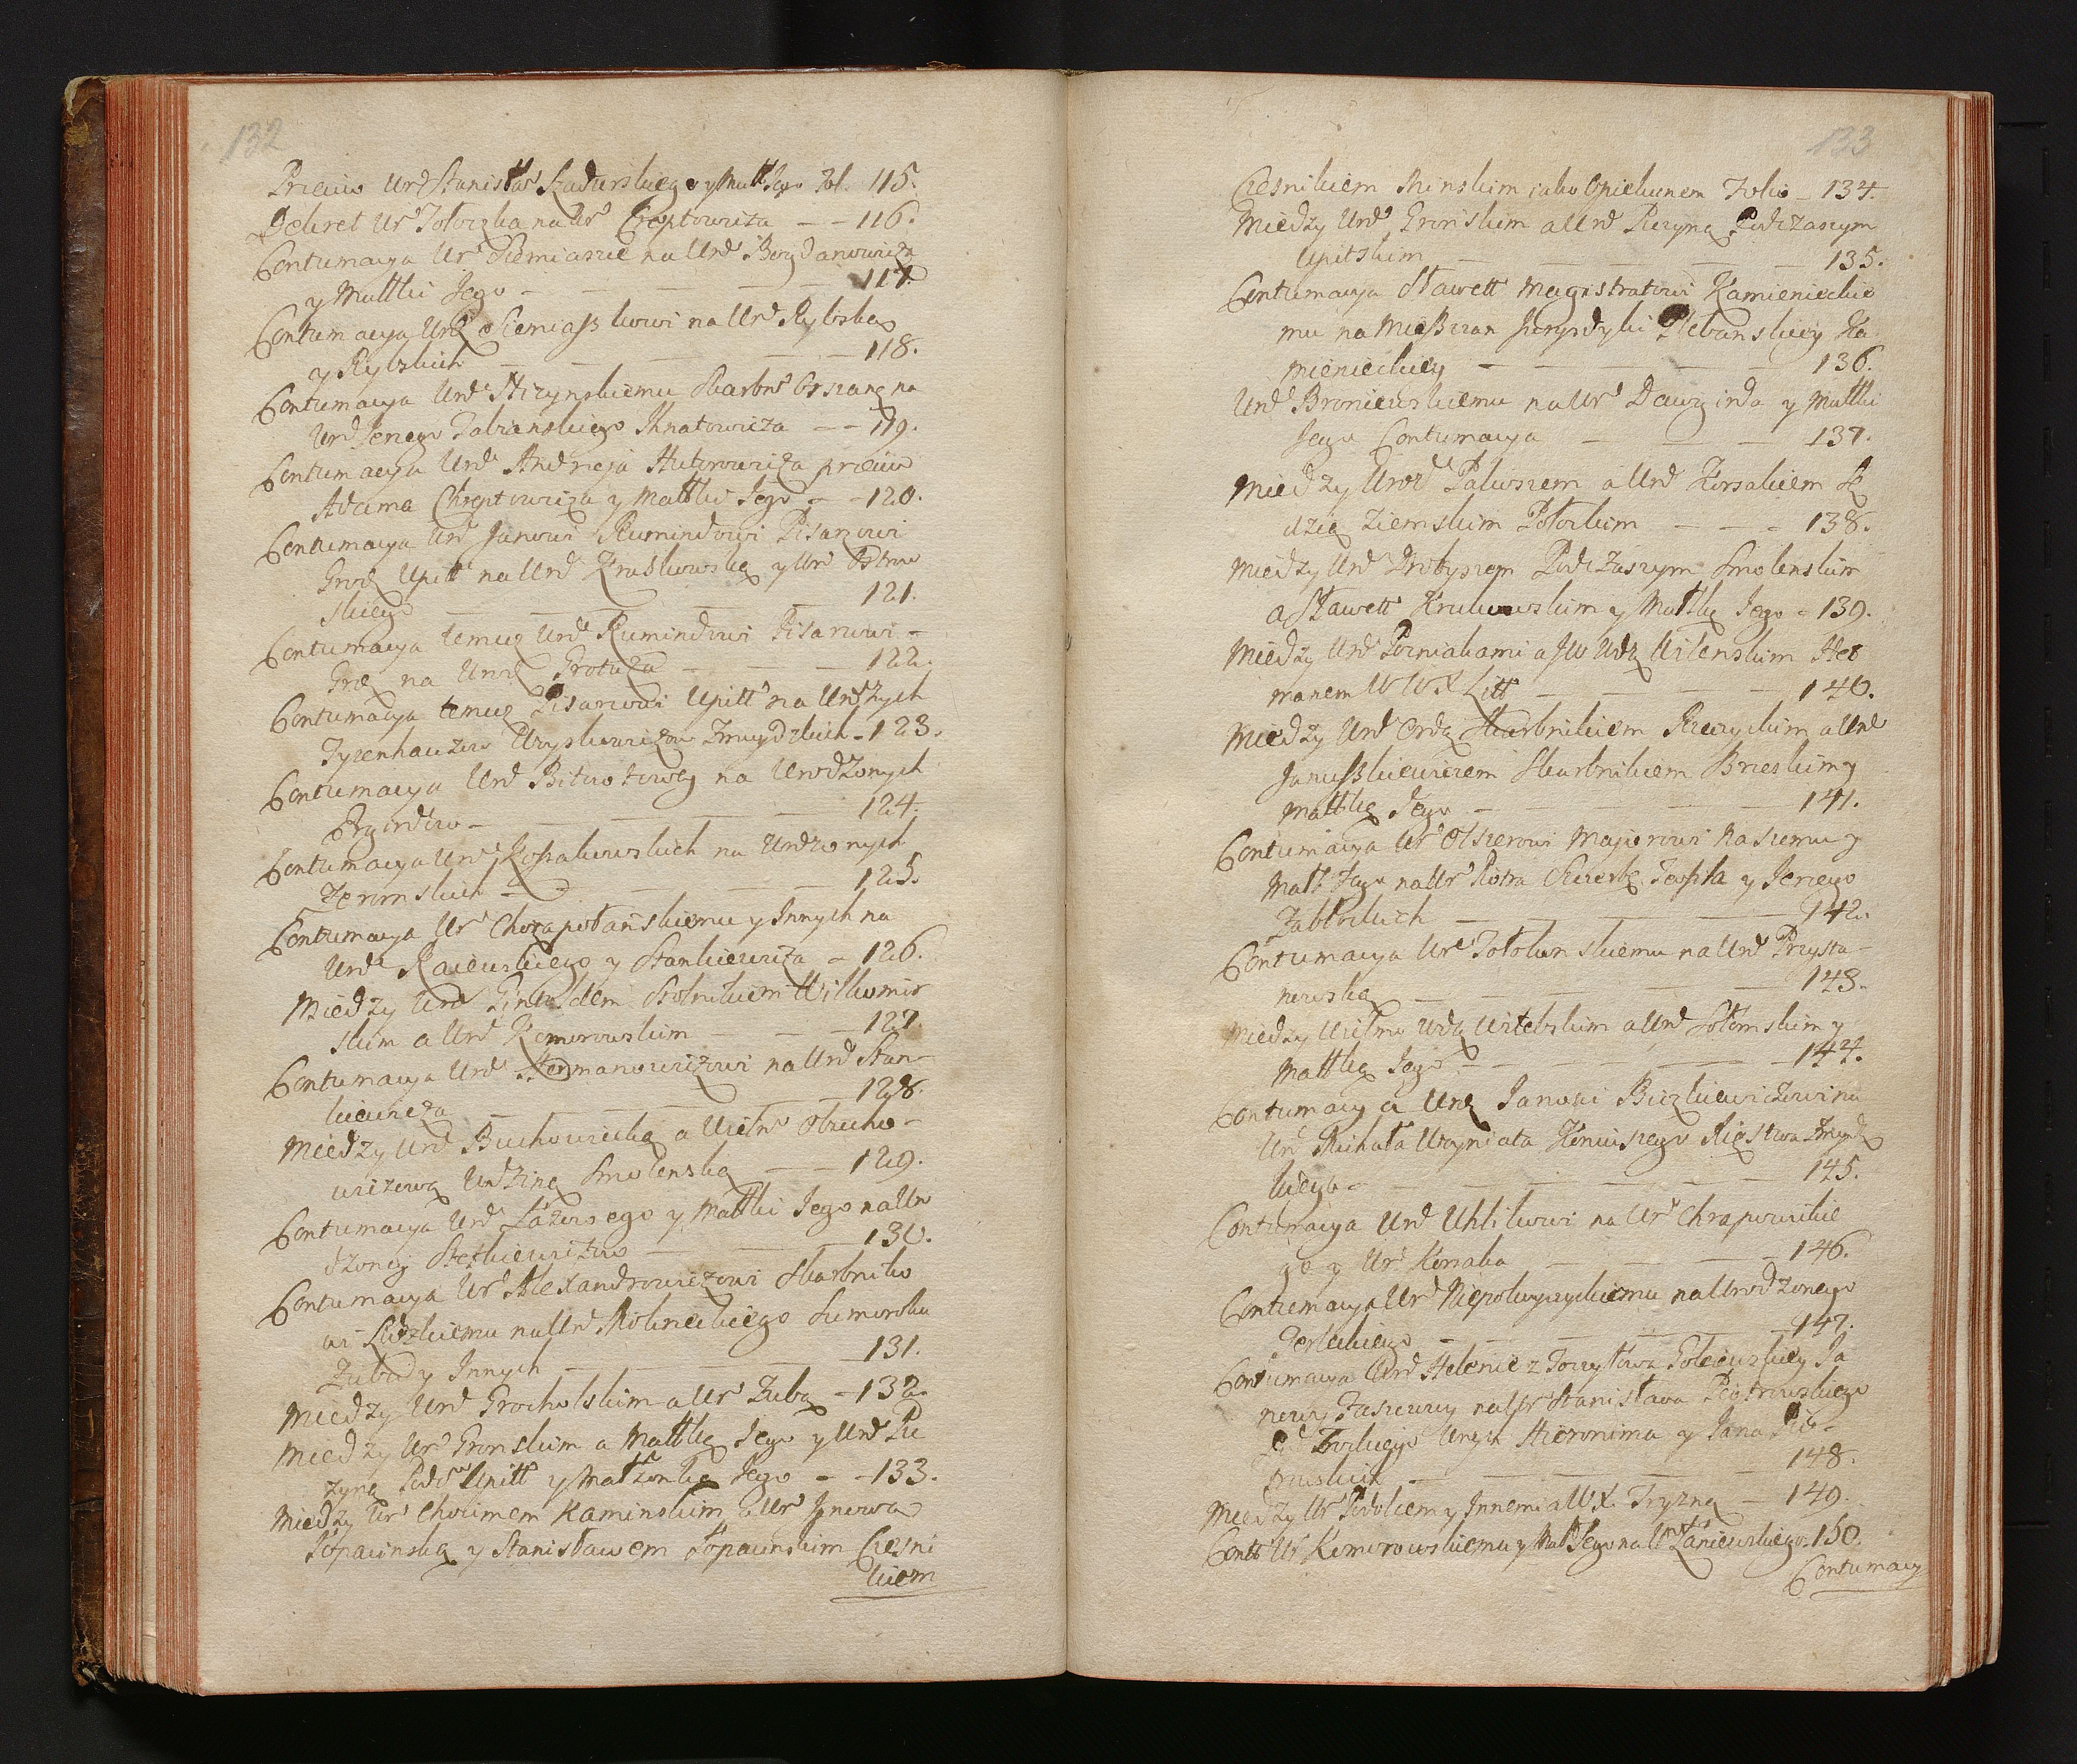 132
Przeciw Urd Stanisław Szadurskiego y Małł Jego Fol. 115.
Dekret Ur Tołoczka na Ur Chreptowicza – – 116.
Contumacya Ur Siemiaszce na Urd Bogdanowicza
y Małłki Jego – – – 117.
Contumacya Urd Siemiaszkowi na Urd Rybską
y Rybskich – – – 118.
Contumacya Urd Hrzynskiemu Skarbn Orszanę na
Urd Jerzego Zabienskiego Ihnatowicza – – 119.
Contumacya Urd Andrzeja Hutorowicza przeciw
Adama Chreptowicza y Małłki Jego – – 120.
Contumacya Urd Janowi Rumindowi Pisarzowi
Grodz Upitt na Urd Kruszkowską y Urd Ostrow
skiego – – – 121.
Contumacya temuz Urd Rumindowi Pisarzowi –
Gro na Urod Grotuza – – – 122.
Contumacya temuz Pisarzowi Upitt na Urodzzych
Tyzenhauzow Uzyskowiczow Zmuydzkich – 123.
Contumacya Urd Bitwotowey na Urodzonych
Ergirdow – – – 124.
Contumacya Urd Kossakowskich na Urodzonych
Zeromskich – – – 125.
Contumacya Ur Chorapołanskiemu y Innych na
Urd Raiewskiego y Stankiewicza – 126.
Miedzy Urd Gintoldem Stolnikiem Wilkomir
skim a Urd Komorowskim – – – 127.
Contumacya Urd Hermanowiczowi na Urd Stan–
kiewicza – – – 128.
Miedzy Urd Buchowiecką a Wielm Obucho–
wiczową Urdzing Smolenską – – 129.
Contumacya Urd Łazowego y Małłki Jego na Uro
dzoney Steckiewiczow – – – 130.
Contumacya Ur Alexandrowiczowi Skarbniko
wi Lidzkiemu na Urd Mokrzeckiego Sumoroka
Zuba y Innych – – – 131.
Miedzy Urd Grocholskim a Ur Zubą – 132.
Miedzy Ur Gronskim a Małłką Jego y Urd Pu
zyną Podcz Upitt y Małzonką Jego – – 133.
Miedzy Ur Choimem Kaminskim a Ur Janowa
Łopacinską y Stanisławem Łopacinskim Czesni
kiem
133
Czesnikiem Minskim iako Opiekunem Folio – 134.
Miedzy Urd Gronskim a Urd Puzyną Podczaszym
Upitskim – – – 135.
Contumacya Sławett Magistratowi Kamienieckie
mu na Mieszczan Jurysdyki Plebanskiey Ka
mienieckiey – – – 136.
Urd Broniewskiemu na Ur Dawgirda y Małłki
Jego Contumacya – – – 137.
Miedzy Urod Pakoszem a Urd Korsakiem Sę
dzią Ziemskim Połockim – – – 138.
Miedzy Urd Drotyszem Podczaszym Smolenskim
a Sławett Krukowskim y Małłką Jego – 139.
Miedzy Urd Pozniakami a JW Wdą Wilenskim Het
manem W W X Litt – – – 140.
Miedzy Urd Ordą Skarbnikiem Rzeczyckim a Urd
Januszkiewiczem Skarbnikiem Brzeskim y
Małłką Jego – – – 141.
Contumacya Ur Olszewi Majorowi naszemu y
Małł Jego na Ur Piotra Chwerbę Josepha y Jerzego
Zabłockich – – – 142.
Contumacya Ur Tołokunskiemu na Urd Przysta–
nowską – – – 143.
Miedzy Wielmo Wdą Witebskim a Urd Sołomskim y
Małłką Jego – – – 144.
Contumacya Urd Janowi Biczkiewiczowi na
Ur Michała Woyniata Koniuszego Xięstwa Zmuydz
kiego – – – 145.
Contumacya Urd Uhlikowi na Ur Chrapowickie
go y Ur Korsaka – – – 146.
Contumacya Urd Niepokoyczyckiemu na Urodzonego
Terleckiego – – – 147.
Contumacya Urd Helenie z Poczytowa Golejewskiey Ja
nowy Jaszewy na Ur Stanisława Piotrowskiego
Trockiego Urzych Hieronima y Jana Pio–
trowskich – – – 148.
Miedzy Ur Podolcem y Innemi a W X Tryzną – 149.
Contt Ur Komorowskiemu y Mał Jego na Ur Łaniewskiego 150.
Contumacy